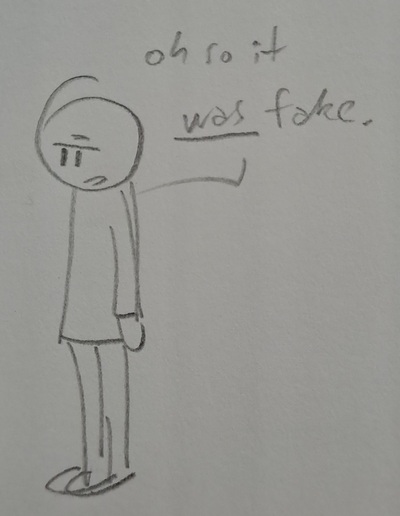 oh so it
was fake.